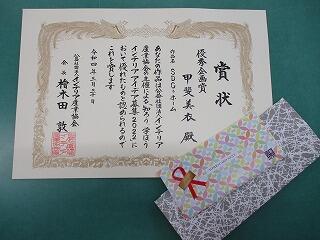 賞状
優秀企画賞
作品名 SDGsホーム
甲斐美衣 殿
あなたの作品は公益社団法人インテリア
産業協会の主催による「知ろう 学ぼう
インテリアアイデア募集2022」に
おいて優れたものと認められるので
これを賞します
令和四年三月三十日
公益社団法人 インテリア産業協会
会長 檜木田 敦